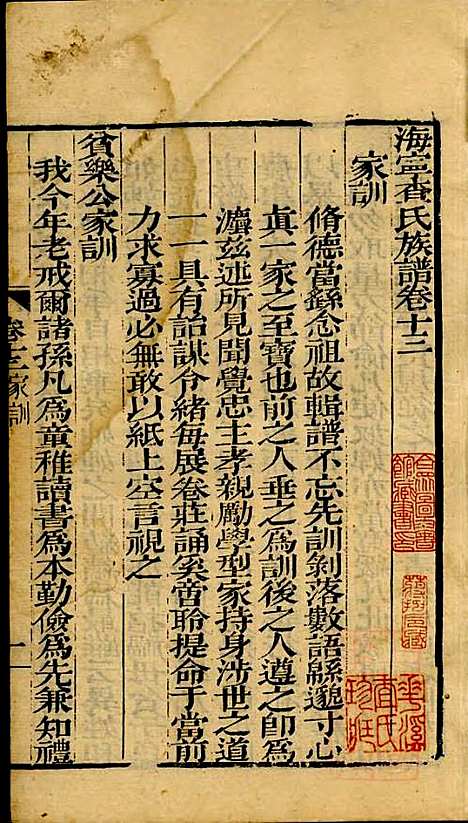 海寧查氏族譜卷十三
家訓
脩德當繇念祖故輯譜不忘先訓剝落數語緜邈寸心
眞一家之至寶也前之人垂之爲訓後之人遵之卽爲
灋兹述所見聞覺忠主孝親勵學型家持身涉世之道
一一具有詒謀令緒每展卷莊誦奚啻聆提命于當前
力求寡過必無敢以紙上空言視之
貧樂公家訓
我今年老戒爾諸孫凡爲童稚讀書爲本勤儉爲先兼知禮
卷十三家訓
一